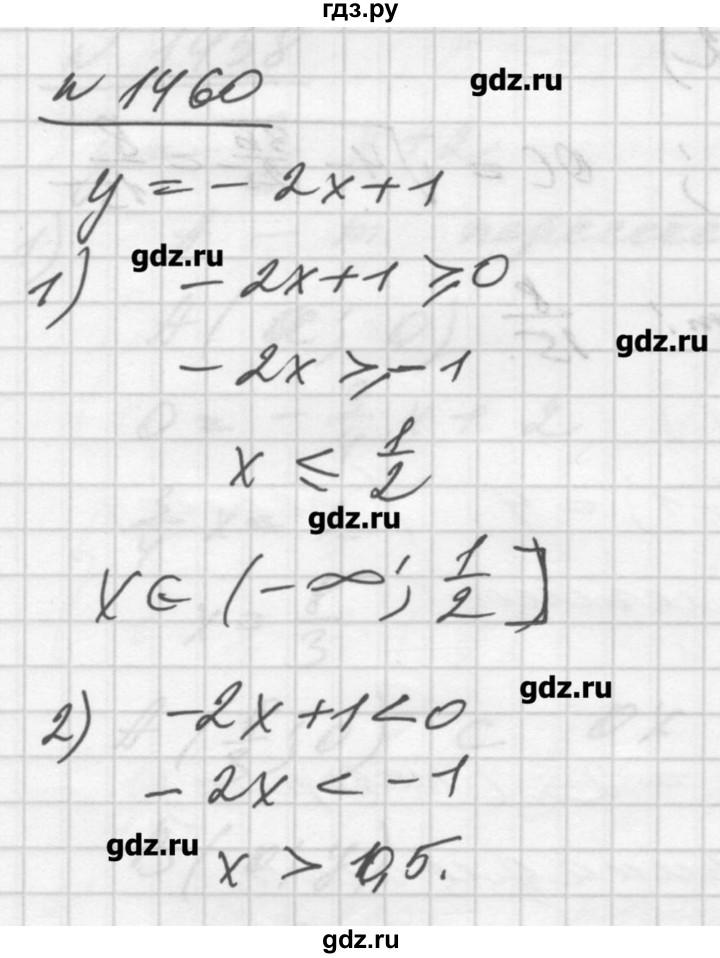 гдз.ру
№ 1460
gdz.ru
y = - 2x + 1
gdz.ru
1) - 2x + 1 ⩾ 0
gdz.ru
- 2x ⩾ - 1
x ≤ 1/2
gdz.ru
x ∈ (- ∞; 1/2]
gdz.ru
2) - 2x + 1 < 0
- 2x < - 1
gdz.ru
x > 0,5.
gdz.ru